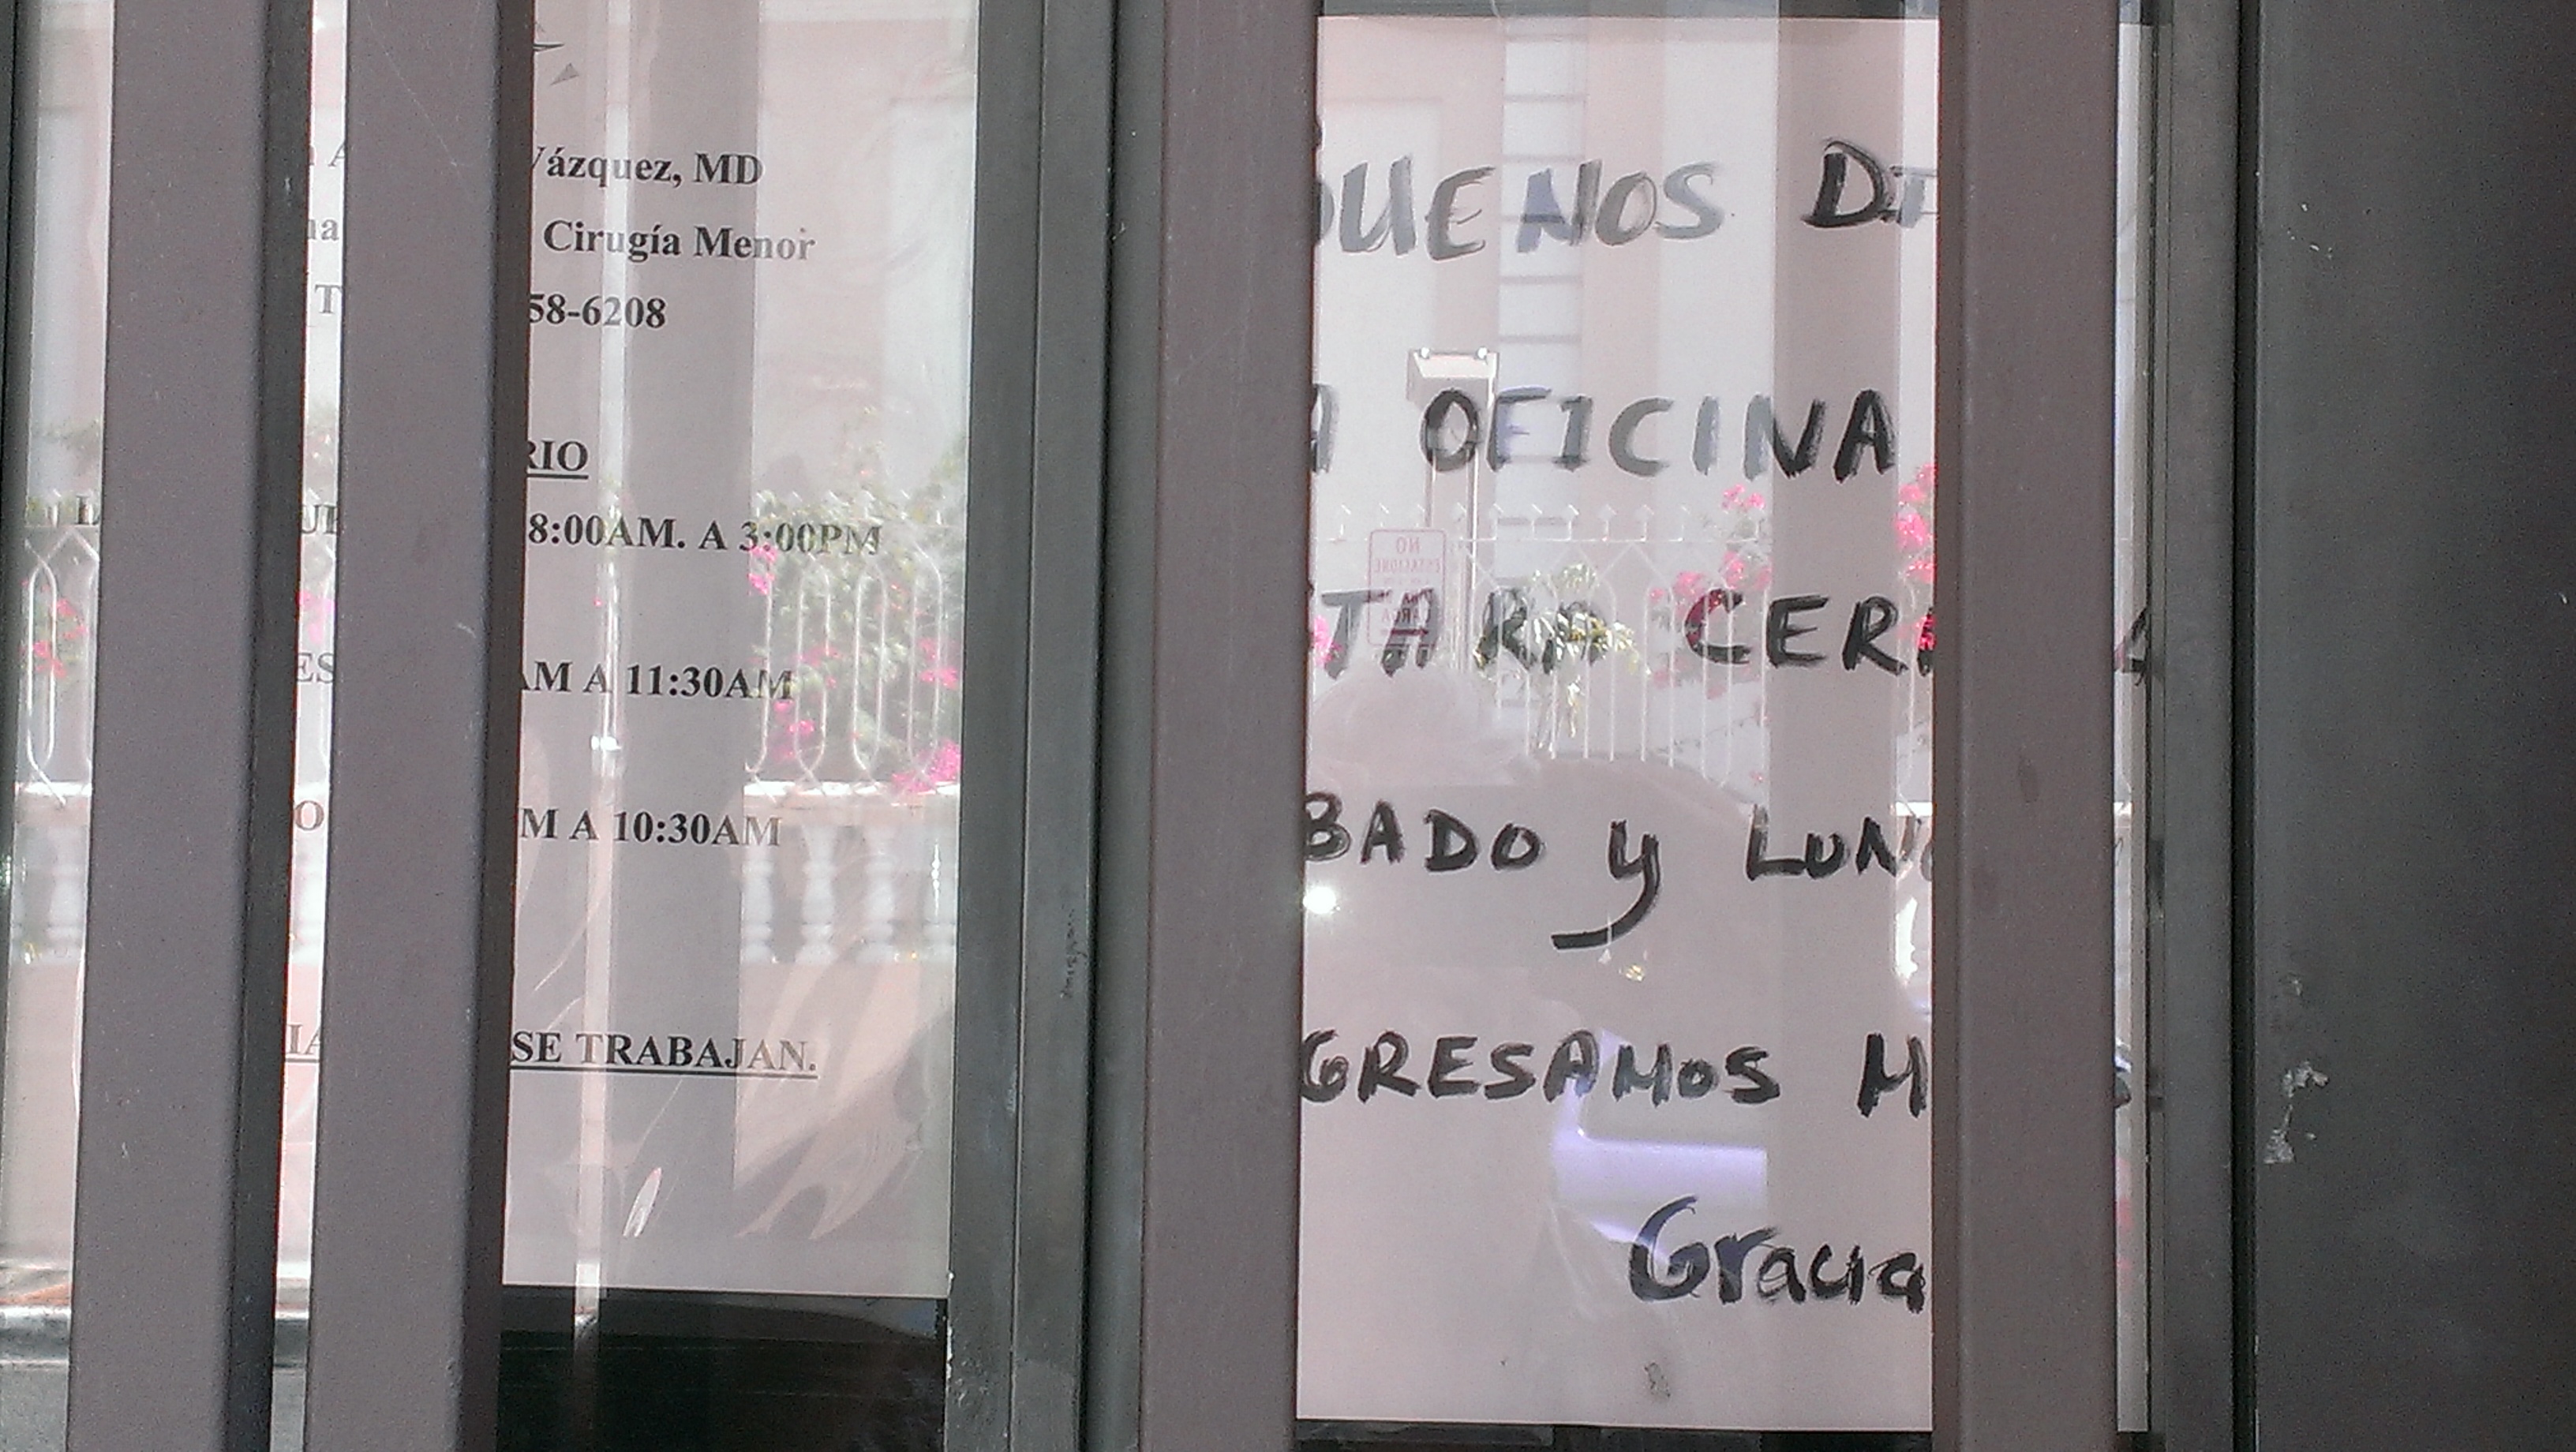 Vázquez, MD
Cirugía Menor
58-6208
RIO
8:00AM. A 3:00PM
ES AM A 11:30AM
O M A 10:30AM
SE TRABAJAN.
BUENOS DI
A OFICINA
TARA CERR
BADO y LUN
GRESAMOS M
Gracia
NO
ESTACIONE